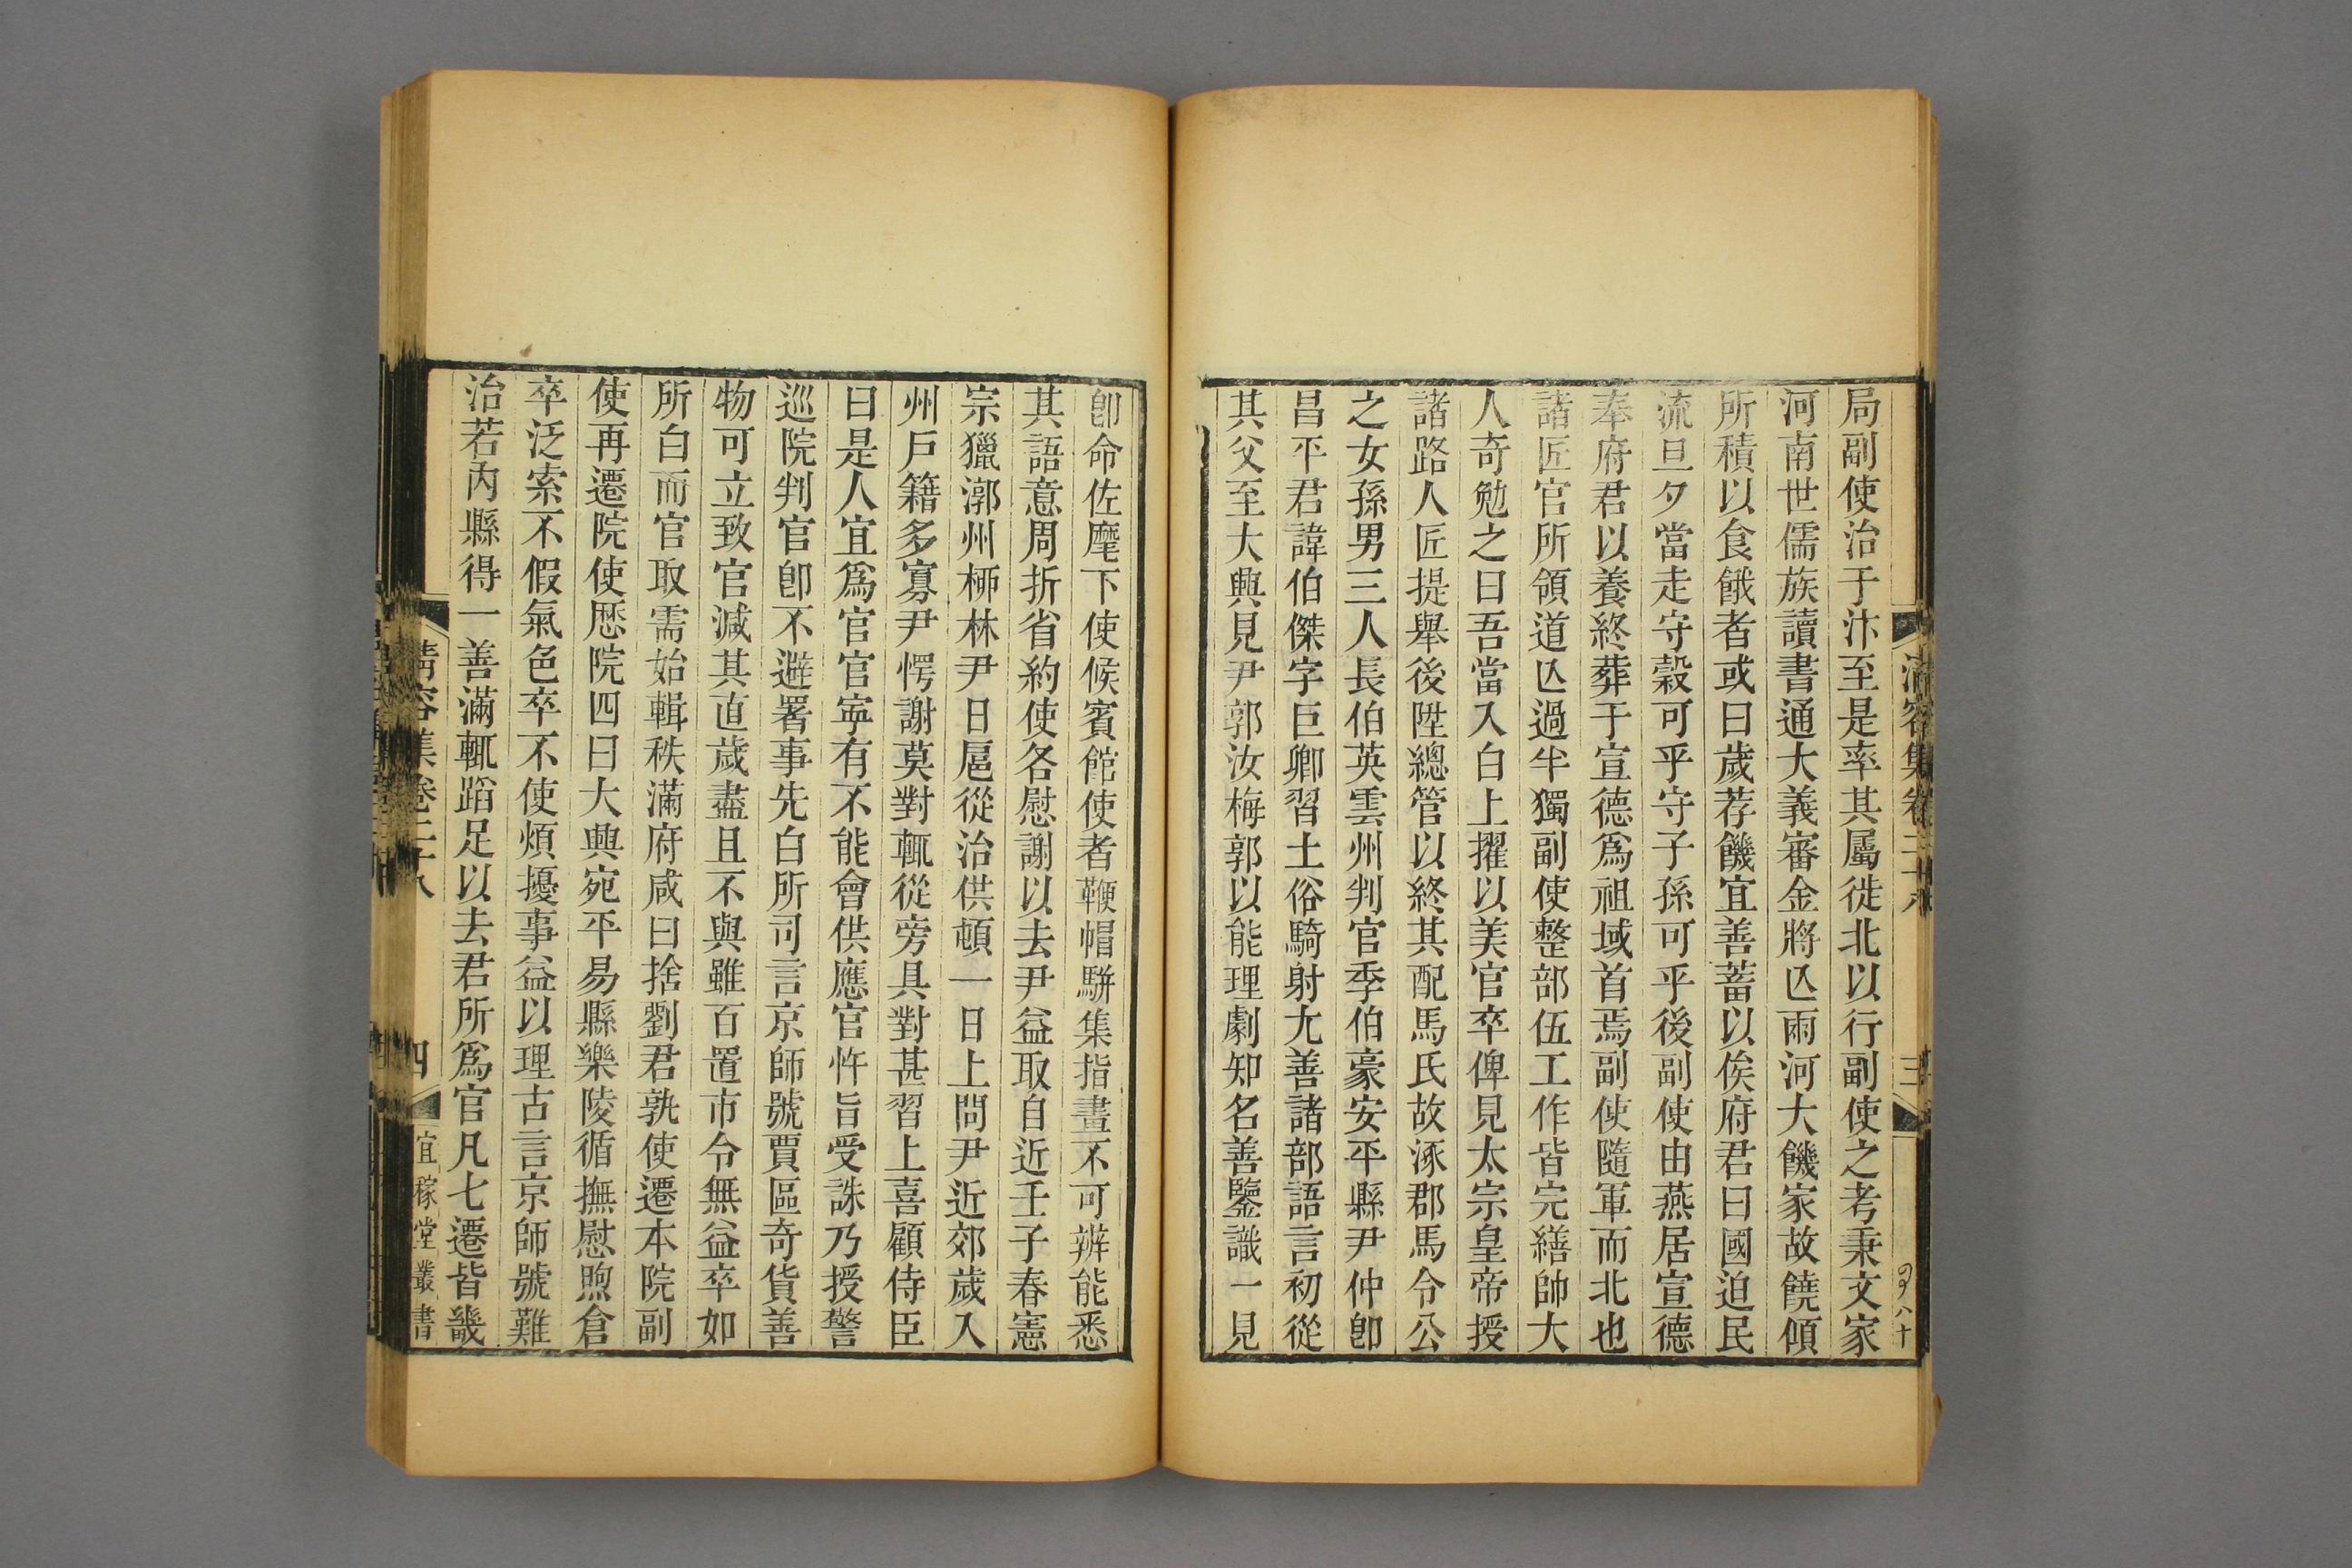 局副使治于汴至是率其屬徙北以行副使之考秉文家
河南世儒族讀書通大義審金將亾兩河大饑家故饒傾
所積以食餓者或曰歲荐饑宜善蓄以俟府君曰國迫民
流旦夕當走守穀可乎守子孫可乎後副使由燕居宣德
奉府君以養終葬于宣德爲祖域首焉副使隨軍而北也
諸匠官所領道亾過半獨副使整部伍工作皆完繕帥大
人奇勉之曰吾當入白上擢以美官卒俾見太宗皇帝授
諸路人匠提舉後陞總管以終其配馬氏故涿郡馬令公
之女孫男三人長伯英雲州判官季伯豪安平縣尹仲卽
昌平君諱伯傑字巨卿習土俗騎射尤善諸部語言初從
其父至大興見尹郭汝梅郭以能理劇知名善鑒識一見
卽命佐麾下使候賓館使者鞭帽駢集指畫不可辨能悉
其語意周折省約使各慰謝以去尹益取自近壬子春憲
宗獵漷州柳林尹日扈從治供頓一日上問尹近郊歲入
州戶籍多寡尹愕謝莫對輒從旁具對甚習上喜顧侍臣
曰是人宜爲官官寧有不能會供應官忤旨受誅乃授警
巡院判官卽不避署事先白所司言京師號賈區奇貨善
物可立致官減其直歲盡且不與雖百置市令無益卒如
所白而官取需始輯秩滿府咸曰捨劉君孰使遷本院副
使再遷院使歷院四曰大興宛平易縣樂陵循撫慰煦倉
卒泛索不假氣色卒不使煩擾事益以理古言京師號難
治若丙縣得一善滿輒蹈足以去君所爲官凡七遷皆畿
清容集卷二十八
三
清容集卷二十八
四
宜稼堂叢書